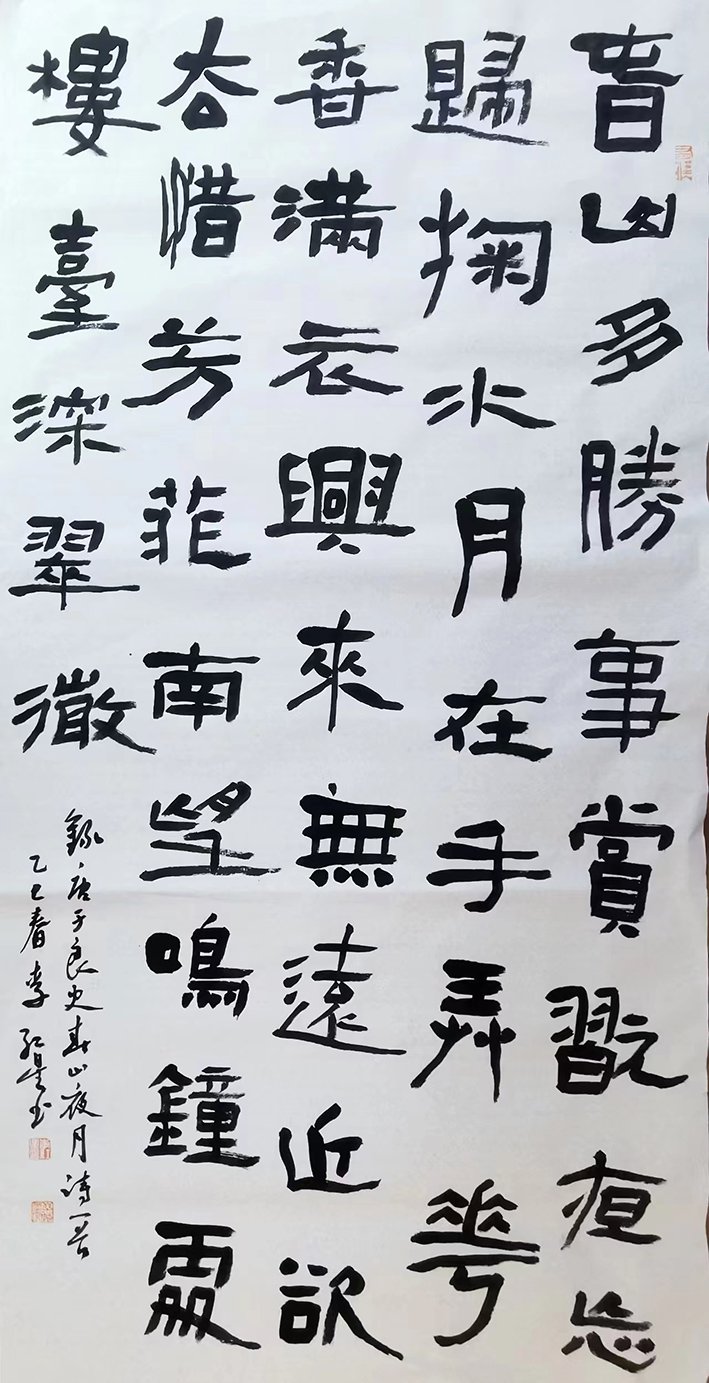 春山多勝事賞翫夜忘
歸掬水月在手弄華
香滿衣興來無遠近欲
去惜芳菲南望鳴鐘處
樓臺深翠微
錄唐于良史春山夜月詩一首
乙巳春李红星书